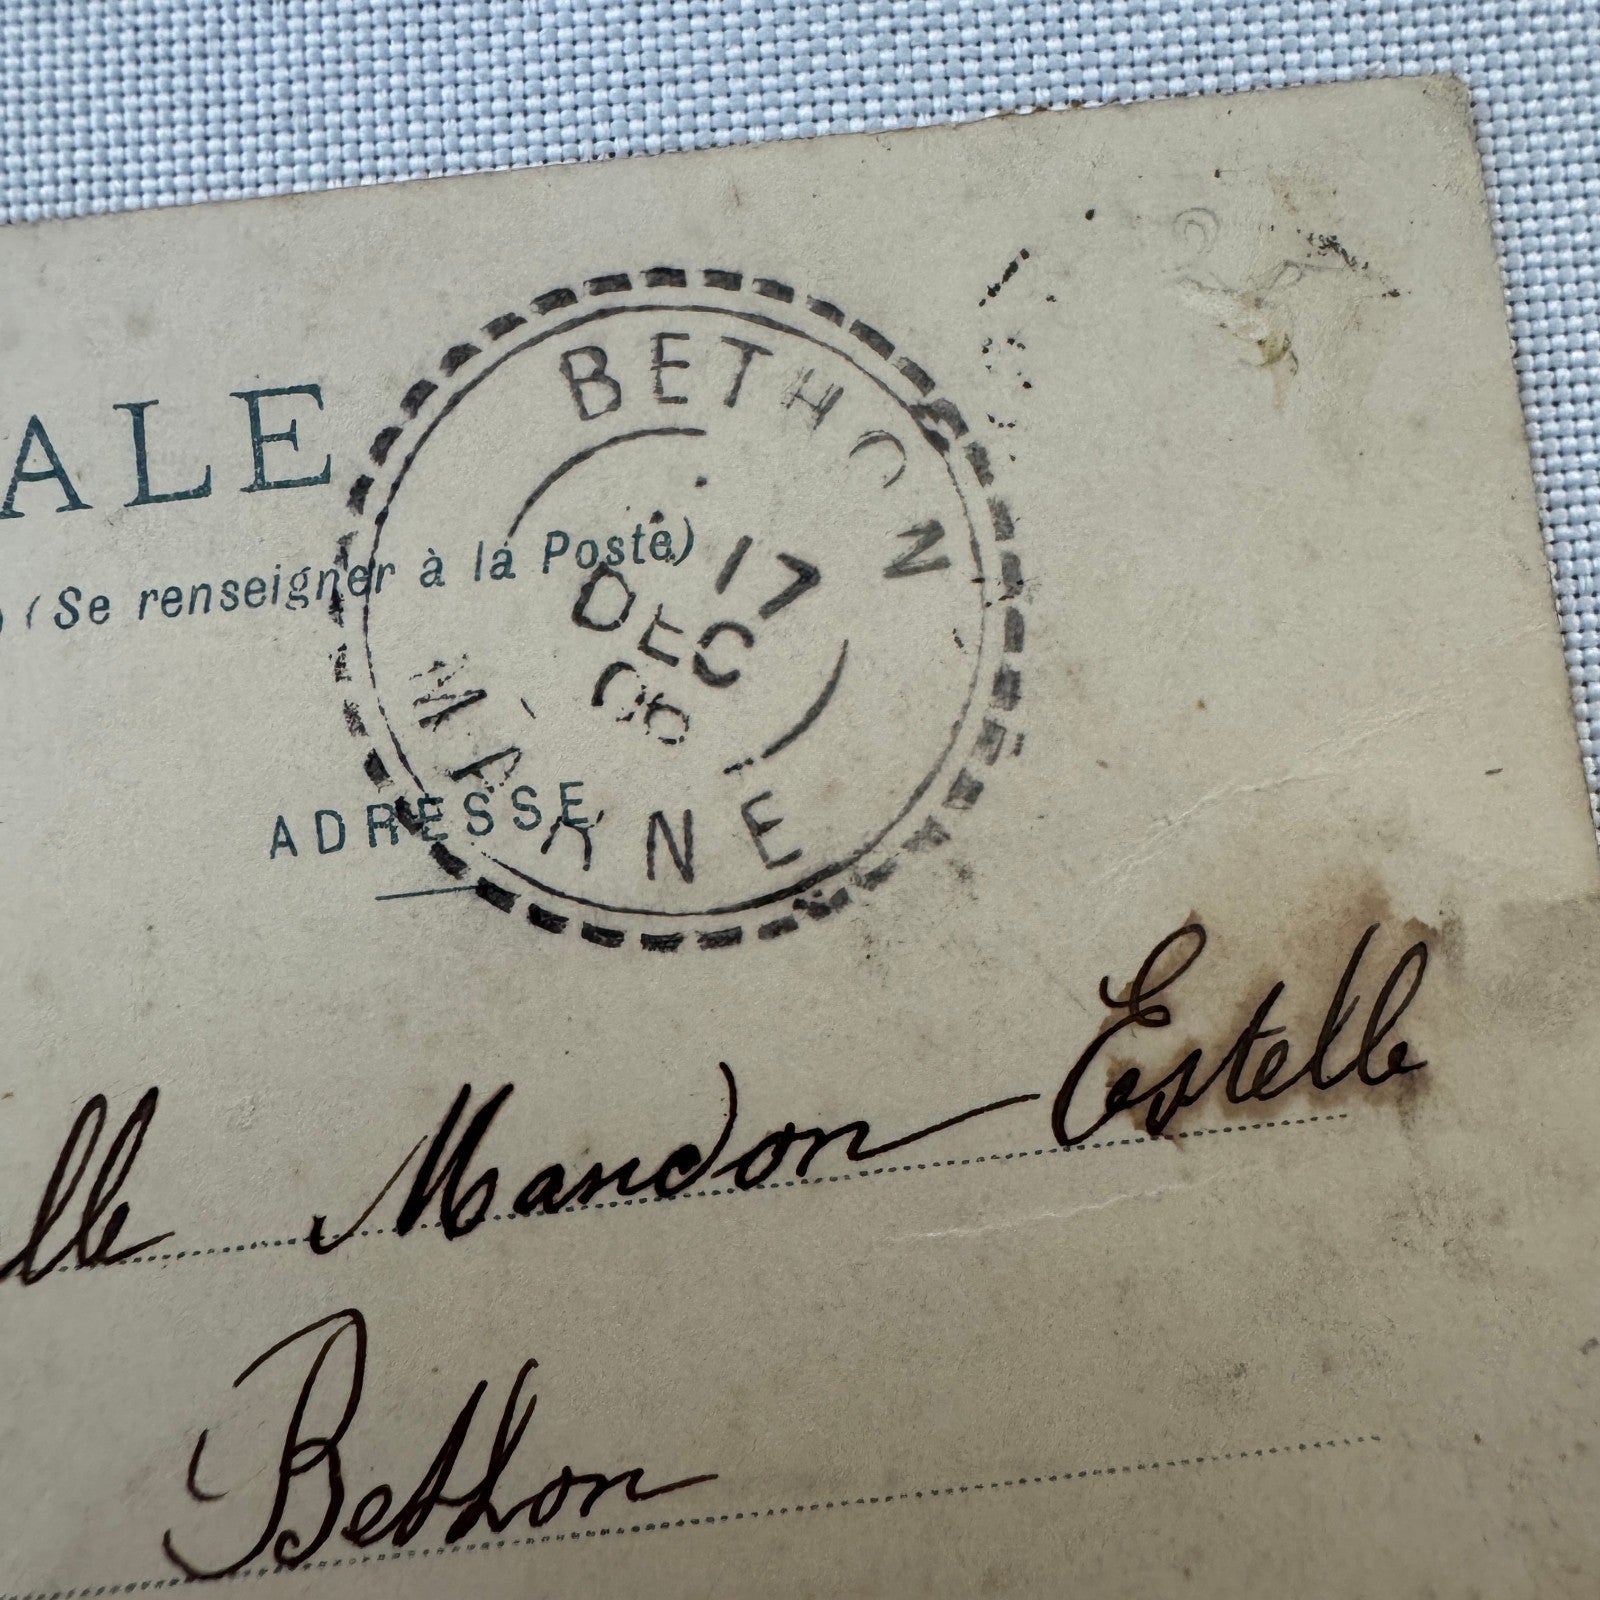 ALE
(Se renseigner à la Poste)
BETHON
17
DEC
06
MARNE
ADRESSE
lle Mandon Estelle
Bethon